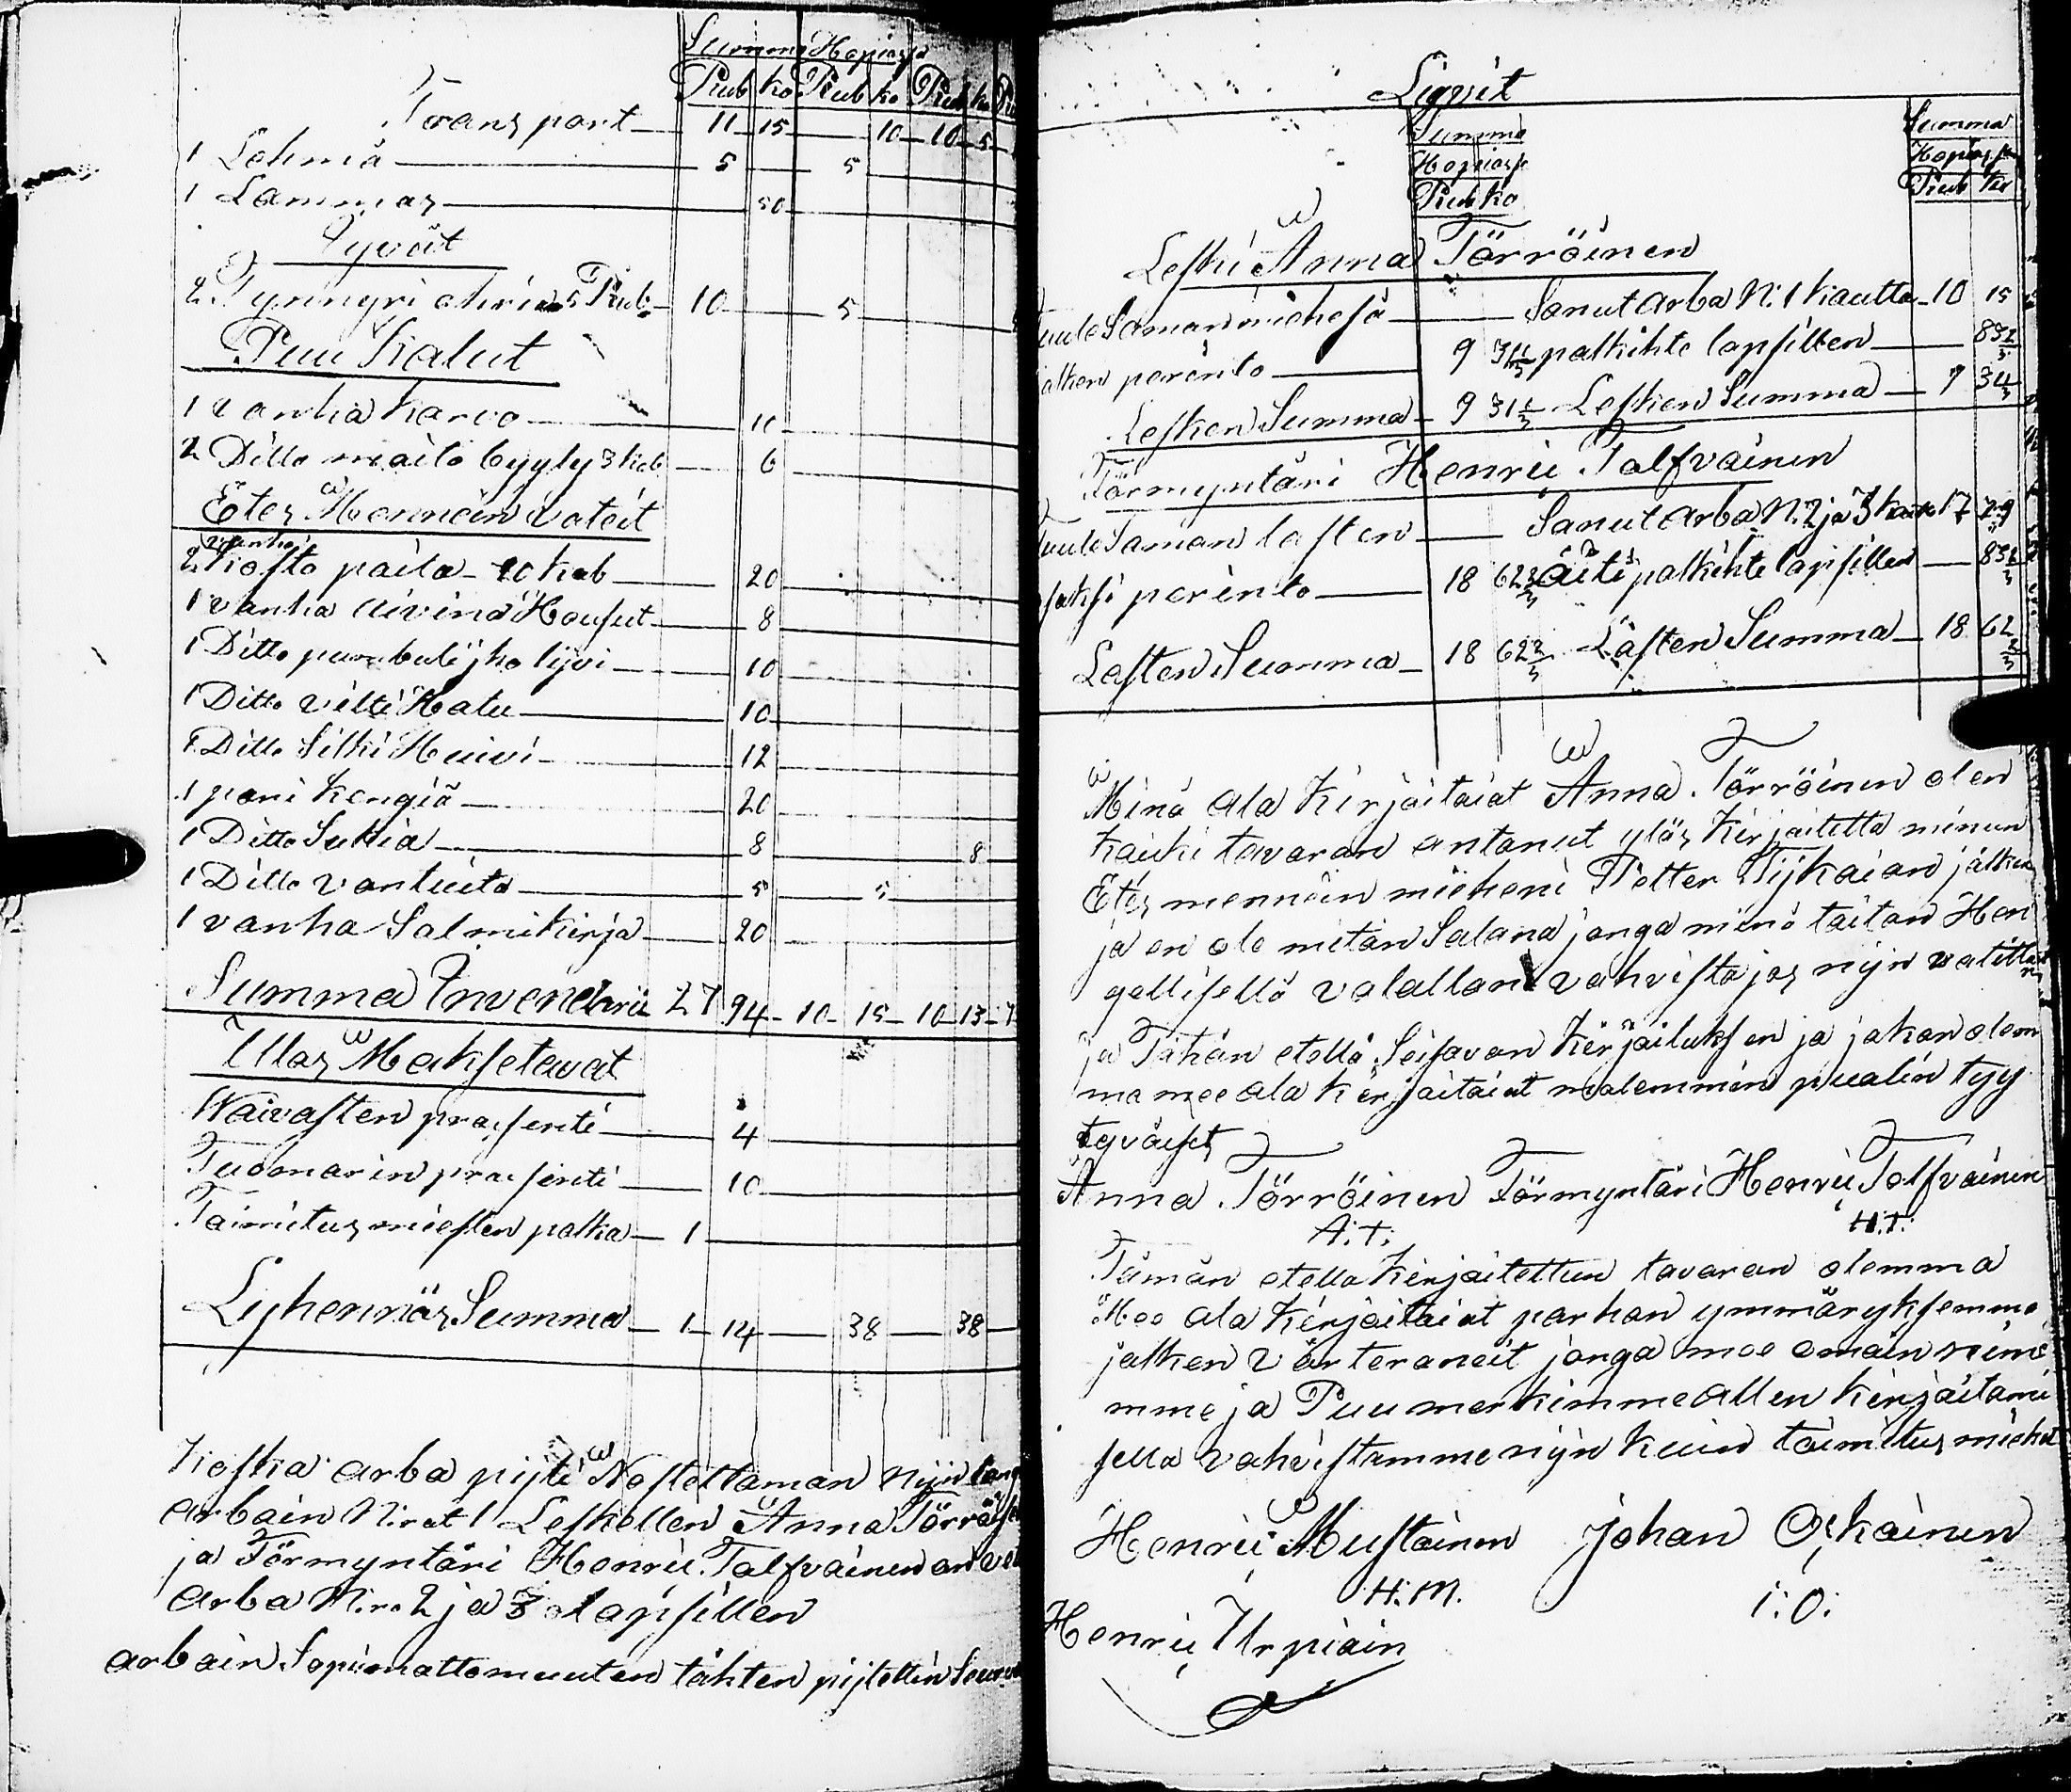 Summa Hopiasa
Rub ko Rub ko Rub ko
Transport 11 15 10 10 5
1 Lehmä 5 5
1 Lammas 50
Jyvät
2 Tynnyri ohria 5 Rub 10 5
Puu Kalut
1 vanha Karvo 10
2 Ditto maito byyty 3 kob 6
Etes Mennein vateit
vanha
2 Kosto paita 10 kob 20
1 vanha aivina Housut 8
1 Ditto pumbulijho lijvi 10
1 Ditto viltti Hatu 10
1 Ditto Silki Huivi 12
1 pari Kengiä 20
1 Ditto Sukia 8 8
1 Ditto vantuita 5 5
1 vanha Salmikirja 20
Summa Inventarii 27 94 10 15 10 13 7
Ullos Maksetavat
Waivasten prasenti 4
Tuomarin prasenti 10
Toimitus miesten palka 1
Lyhennös Summa 1 14 38 38
Koska arba pijti Nostettaman nijn lang
arbain N:rot 1 Leskellen Anna Törröise
ja Förmyntäri Henrii Talfvainen on vet
arba N:ro 2 ja 3 lapsillen
arbain Sopiomattomuuten tähten pijtettin Seura
Ligvit
Summa Summa
Hopiasa Hopiasa
Rub ko Rub ko
Leski Anna Törröinen
tuule Saman miehesä Sanut arba N:1 kautta 10 15
alken perinto 9 31 1/3 palkihte lapsillen 83 2/3
Lesken Summa 9 31 1/3 Lesken Summa 9 31 1/3
Förmyntäri Henrii Talfvainen
Tuule Saman lasten Sanut arba N:2 ja 3 kaut 17 79
saksi perinto 18 62 2/3 äiti palkihte lapsillen 83 2/3
Lasten Summa 18 62 2/3 Lasten Summa 18 62 2/3
Minä ala Kirjaitaiat Anna Törröinen olen
kaiki tavaran antanut ylös Kirjaitetta minun
Etes mennein mieheni Petter Tijkaian jälken
ja en ole mitän Salana jonga minä taitan Hen
gellisellä valallani vahvista jos nijn vatitta
ja Tähän etellä Seisavan Kirjailuksen ja jakon olem
ma mee ala Kirjaitaiat malemmin pualin tyy
tyväiset
Anna Törröinen Förmyntäri Henrii Talfvainen
A:T: H:T:
Tämän etella Kirjaitettun tavaran olemma
Mee ala Kirjaitaiat parhan ymmäryksemme
jälken värteraneit jonga mee omain nime
mme ja Puumerkimme allen kirjaitami
sella vahvistamme nijn kuin toimitus miehet
Henrii Mustainen Johan Oskainen
H:M. I:O:
Henrii Urpiain